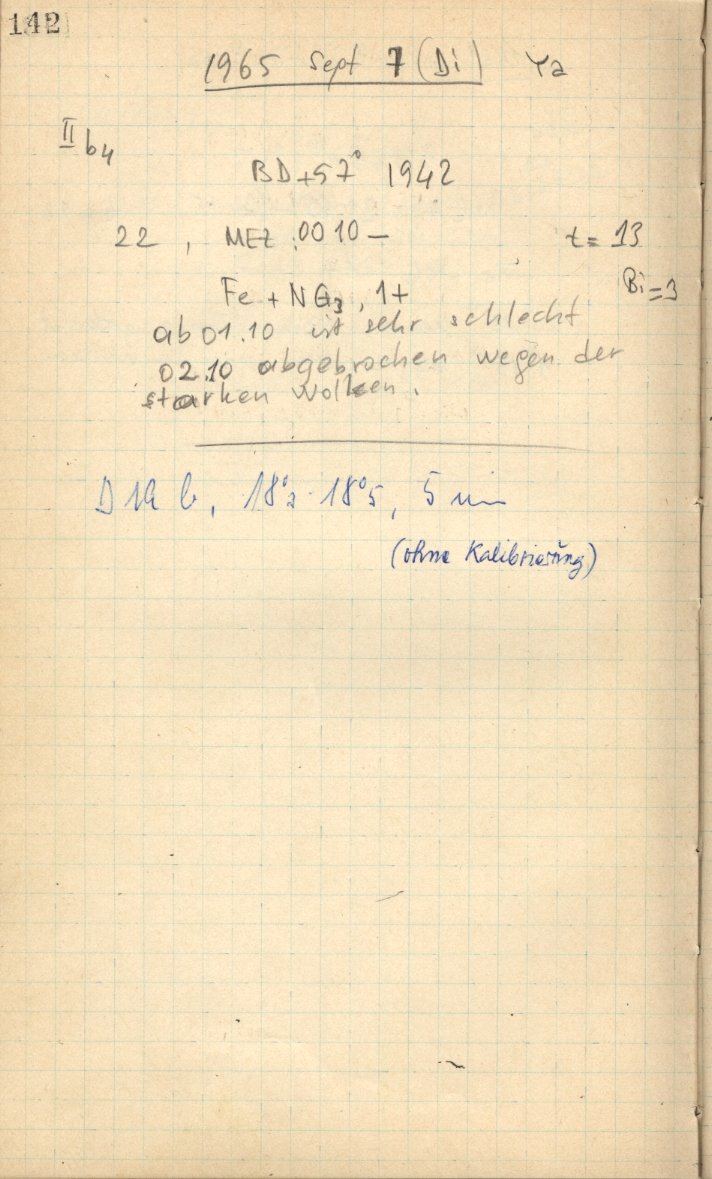 142
1965 Sept 7 (Di) Ya
II b4
BD+57° 1942
22, MEZ :0010 – t= 13
Bi=3
Fe + NG3, 1+
ab 01.10 ist sehr schlecht
02.10 abgebrochen wegen der
starken Wolken.
D 19 b, 18°2 - 18°5, 5 min
(ohne Kalibrierung)